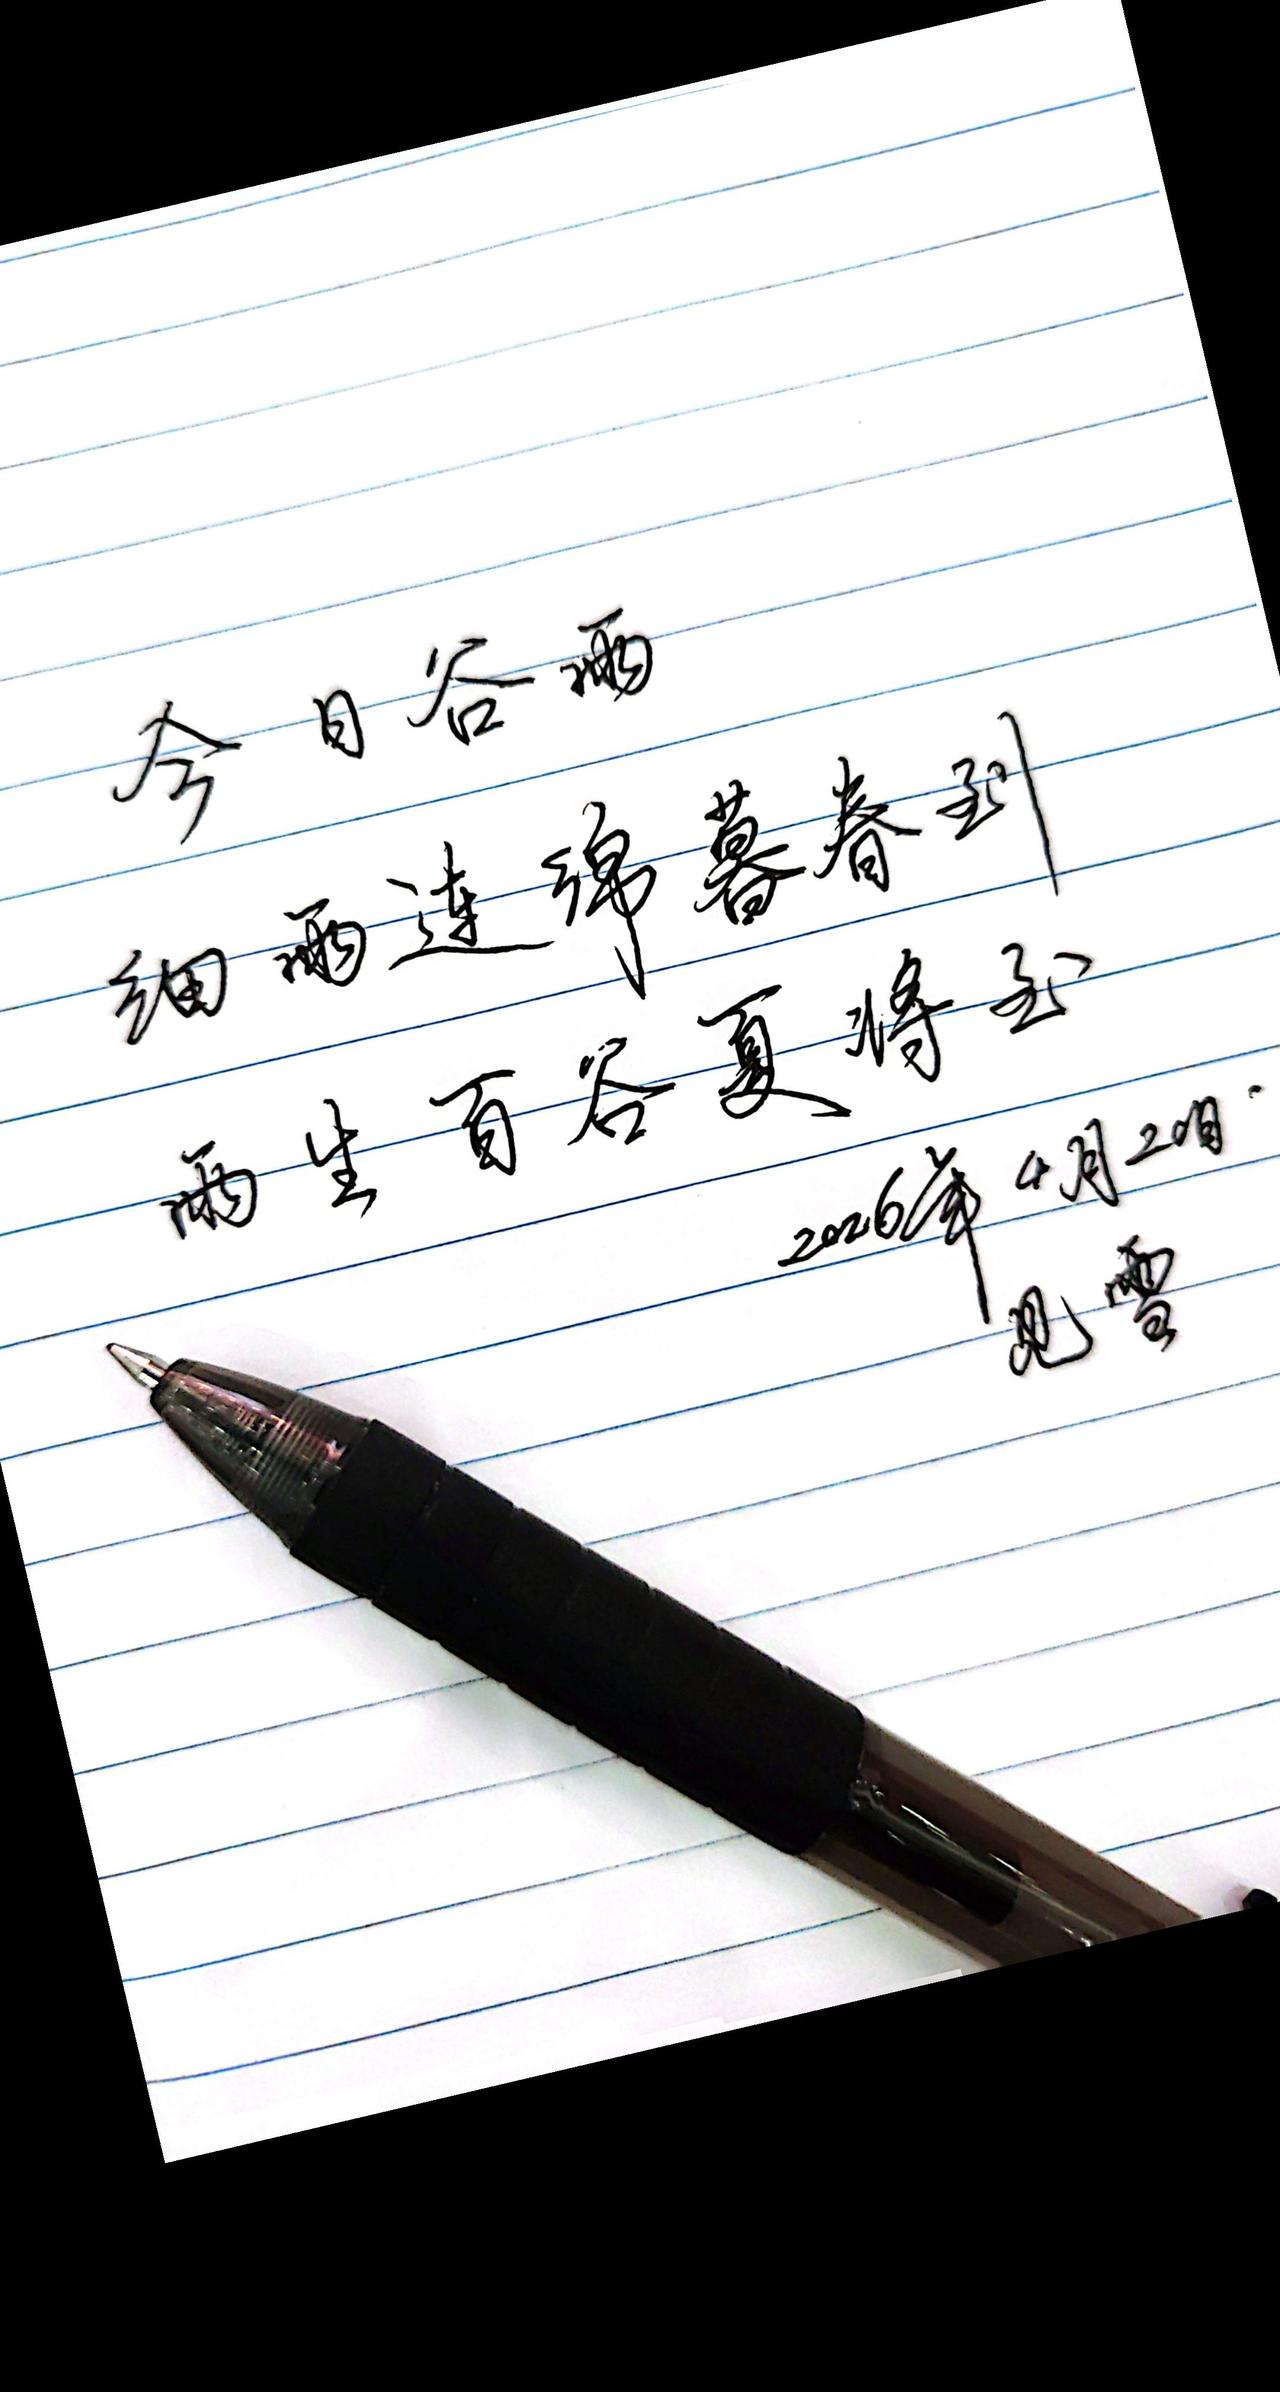 今日谷雨
细雨连绵暮春到
雨生百谷夏将至
2026年4月20日.
见雪